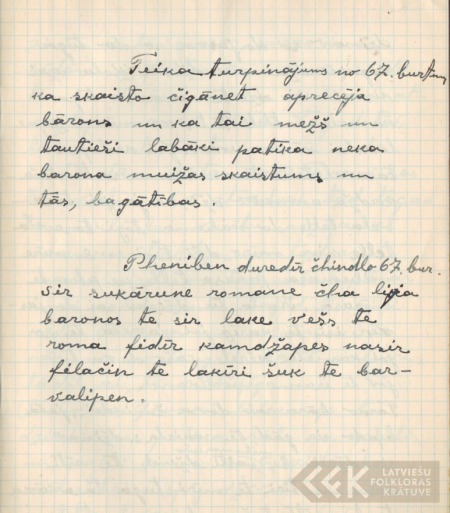 Teika turpinājums no 67. burtn.
ka skaisto čigānet aprecēja
bārons un ka tai mežs un
tautieši labāki patika neka
barona muižas skaistums un
tās, bagātibas.
Pheniben duredīr čhindlo 67. bur.
sir sukārune romane čha lija
baronos te sir lake vešs te
roma fidīr kamdžapes nasir
fēlačin te lakiri šuk te bar-
valipen.
LATVIEŠU
FOLKLORAS
KRĀTUVE